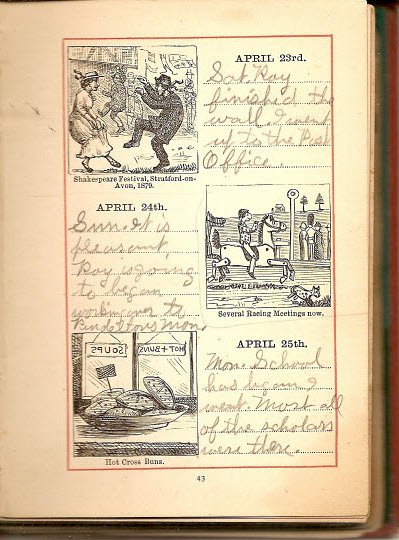 APRIL 23rd.
Sat. Roy
finished the
wall. I went
up to the Post
Office.
Shakespeare Festival, Stratford-on-
Avon, 1879.
APRIL 24th.
Sun. It is
pleasant,
Roy is going
to began
working over to
Mon.
Several Racing Meetings now.
SOUPS
HOT + BUNS
APRIL 25th.
Mon. School
has began I
went. Most all
of the scholars
were there.
Hot Cross Buns.
43